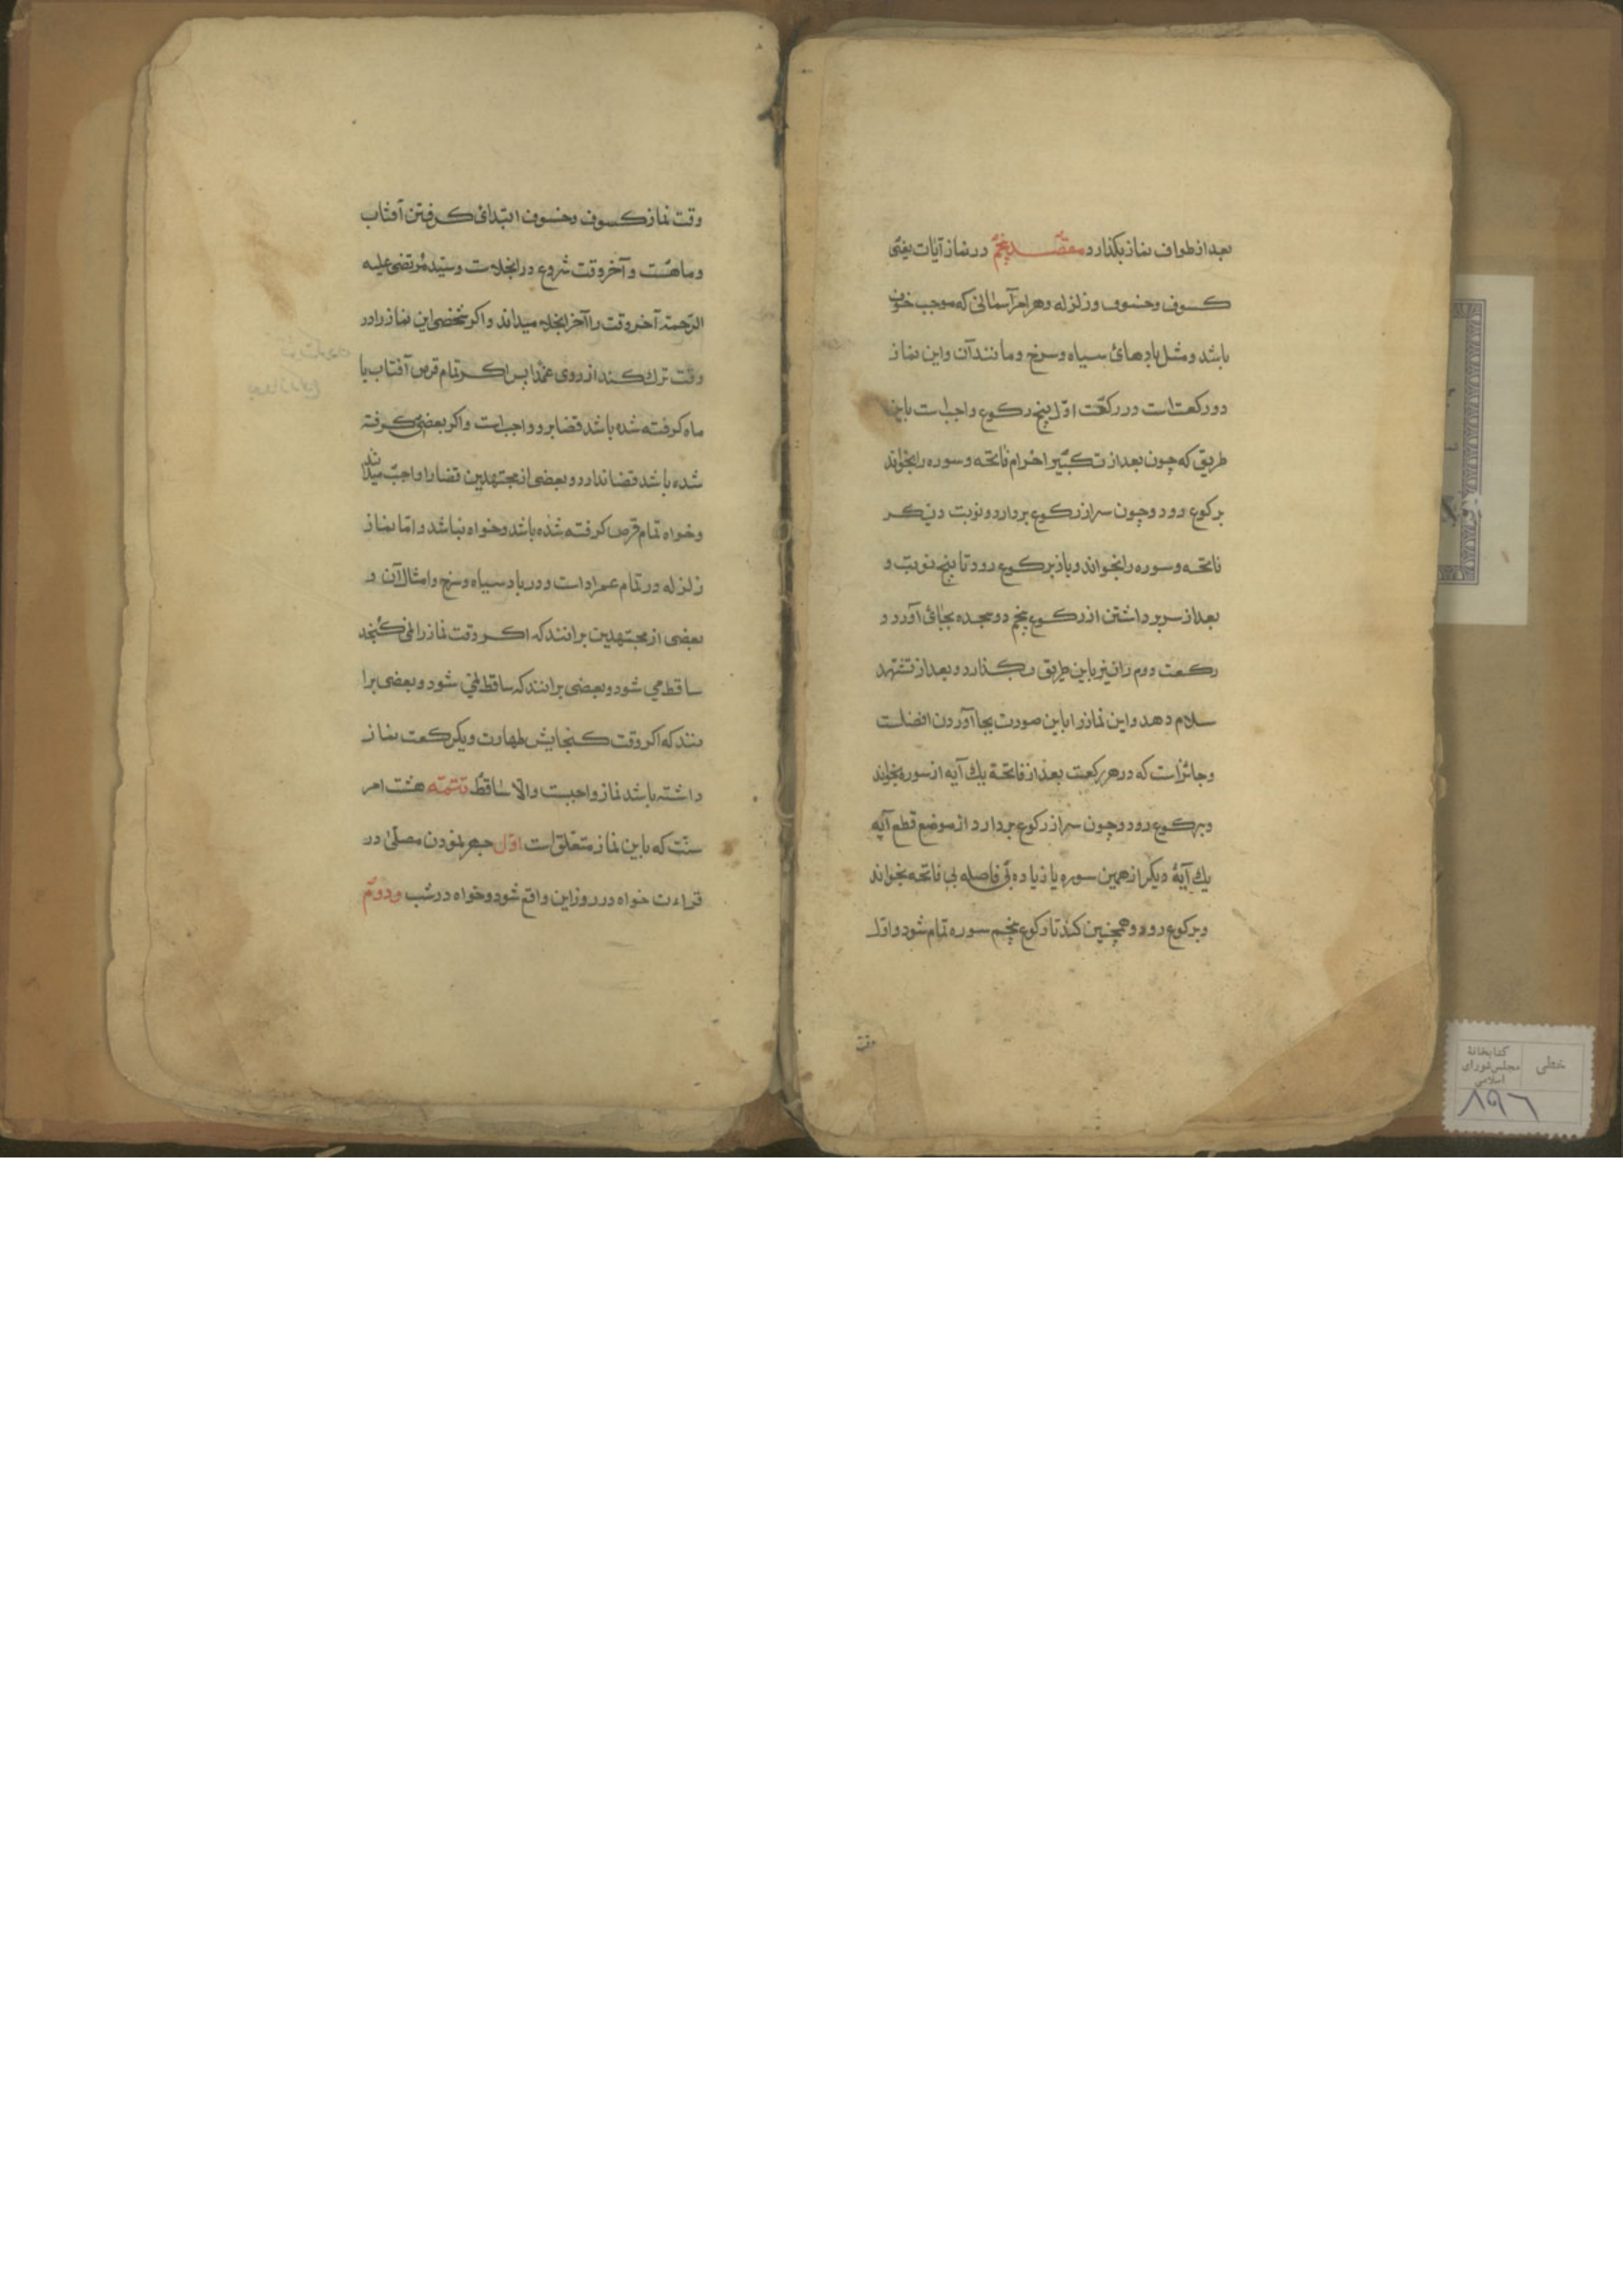 بعد از طواف نماز بکذارد مقصد پنجم در نماز آیات یعنی
کسوف وخسوف وزلزله وهر امر آسمانی که موجب خوف
باشد ومثل بادهائ سیاه وسرخ ومانند آن واین نماز
دو رکعت است در رکعت اوّل پنج رکوع واجب است باین
طریق که چون بعد از تکبیر احرام فاتحه وسوره را بخواند
برکوع رود وچون سر از رکوع بردارد ونوبت دیکر
فاتحه وسوره را بخواند وباز برکوع رود تا پنج نوبت و
بعد از سر برداشتن از رکوع پنجم دو سجده بجائ آورد و
رکعت دوم را نیز باین طریق بکذارد وبعد از تشهد
سلام دهد واین نماز را باین صورت بجا آوردن افضلست
وجائز است که در هر رکعت بعد از فاتحة یك آیه از سوره بخواند
وبرکوع رود وچون سر از رکوع بردارد از موضع قطع آیه
یك آیهٔ دیکر از همین سوره یا زیاده بی فاصله بی فاتحه بخواند
وبرکوع رود وهمچنین کند تا رکوع پنجم سوره تمام شود واوّل
وقت
وقت نماز کسوف وخسوف ابتدای کرفتن آفتاب
وماهست وآخر وقت شروع در انجلاست وسیّد مرتضی علیه
الرّحمة آخر وقت را آخر انجلا میداند واکر شخصی این نماز را در
وقت ترك کند از روی عمدا پس اکر تمام قرص آفتاب یا
ماه کرفته شده باشد قضا برو واجب است واکر بعضی کرفته
شده باشد قضا ندارد وبعضی از مجتهدین قضا را واجب میدانند
وخواه تمام قرص کرفته شده باشد وخواه نباشد وامّا نماز
زلزله در تمام عمر اداست ودر باد سیاه وسرخ وامثال آن و
بعضی از مجتهدین برانند که اکر وقت نماز را نمی کنجد
ساقط می شود وبعضی برانند که ساقط نمی شود وبعضی برا
نند که اکر وقت کنجایش طهارت ویکرکعت نماز
داشته باشد نماز واجبست والّا ساقط تتمّه هشت امر
سنّت که باین نماز متعلّق است اوّل جهر نمودن مصلّی در
قراءت خواه در روز این واقع شود وخواه در شب ودوّم
خطی
کتابخانهٔ
مجلس شورای
اسلامی
۸۹۶